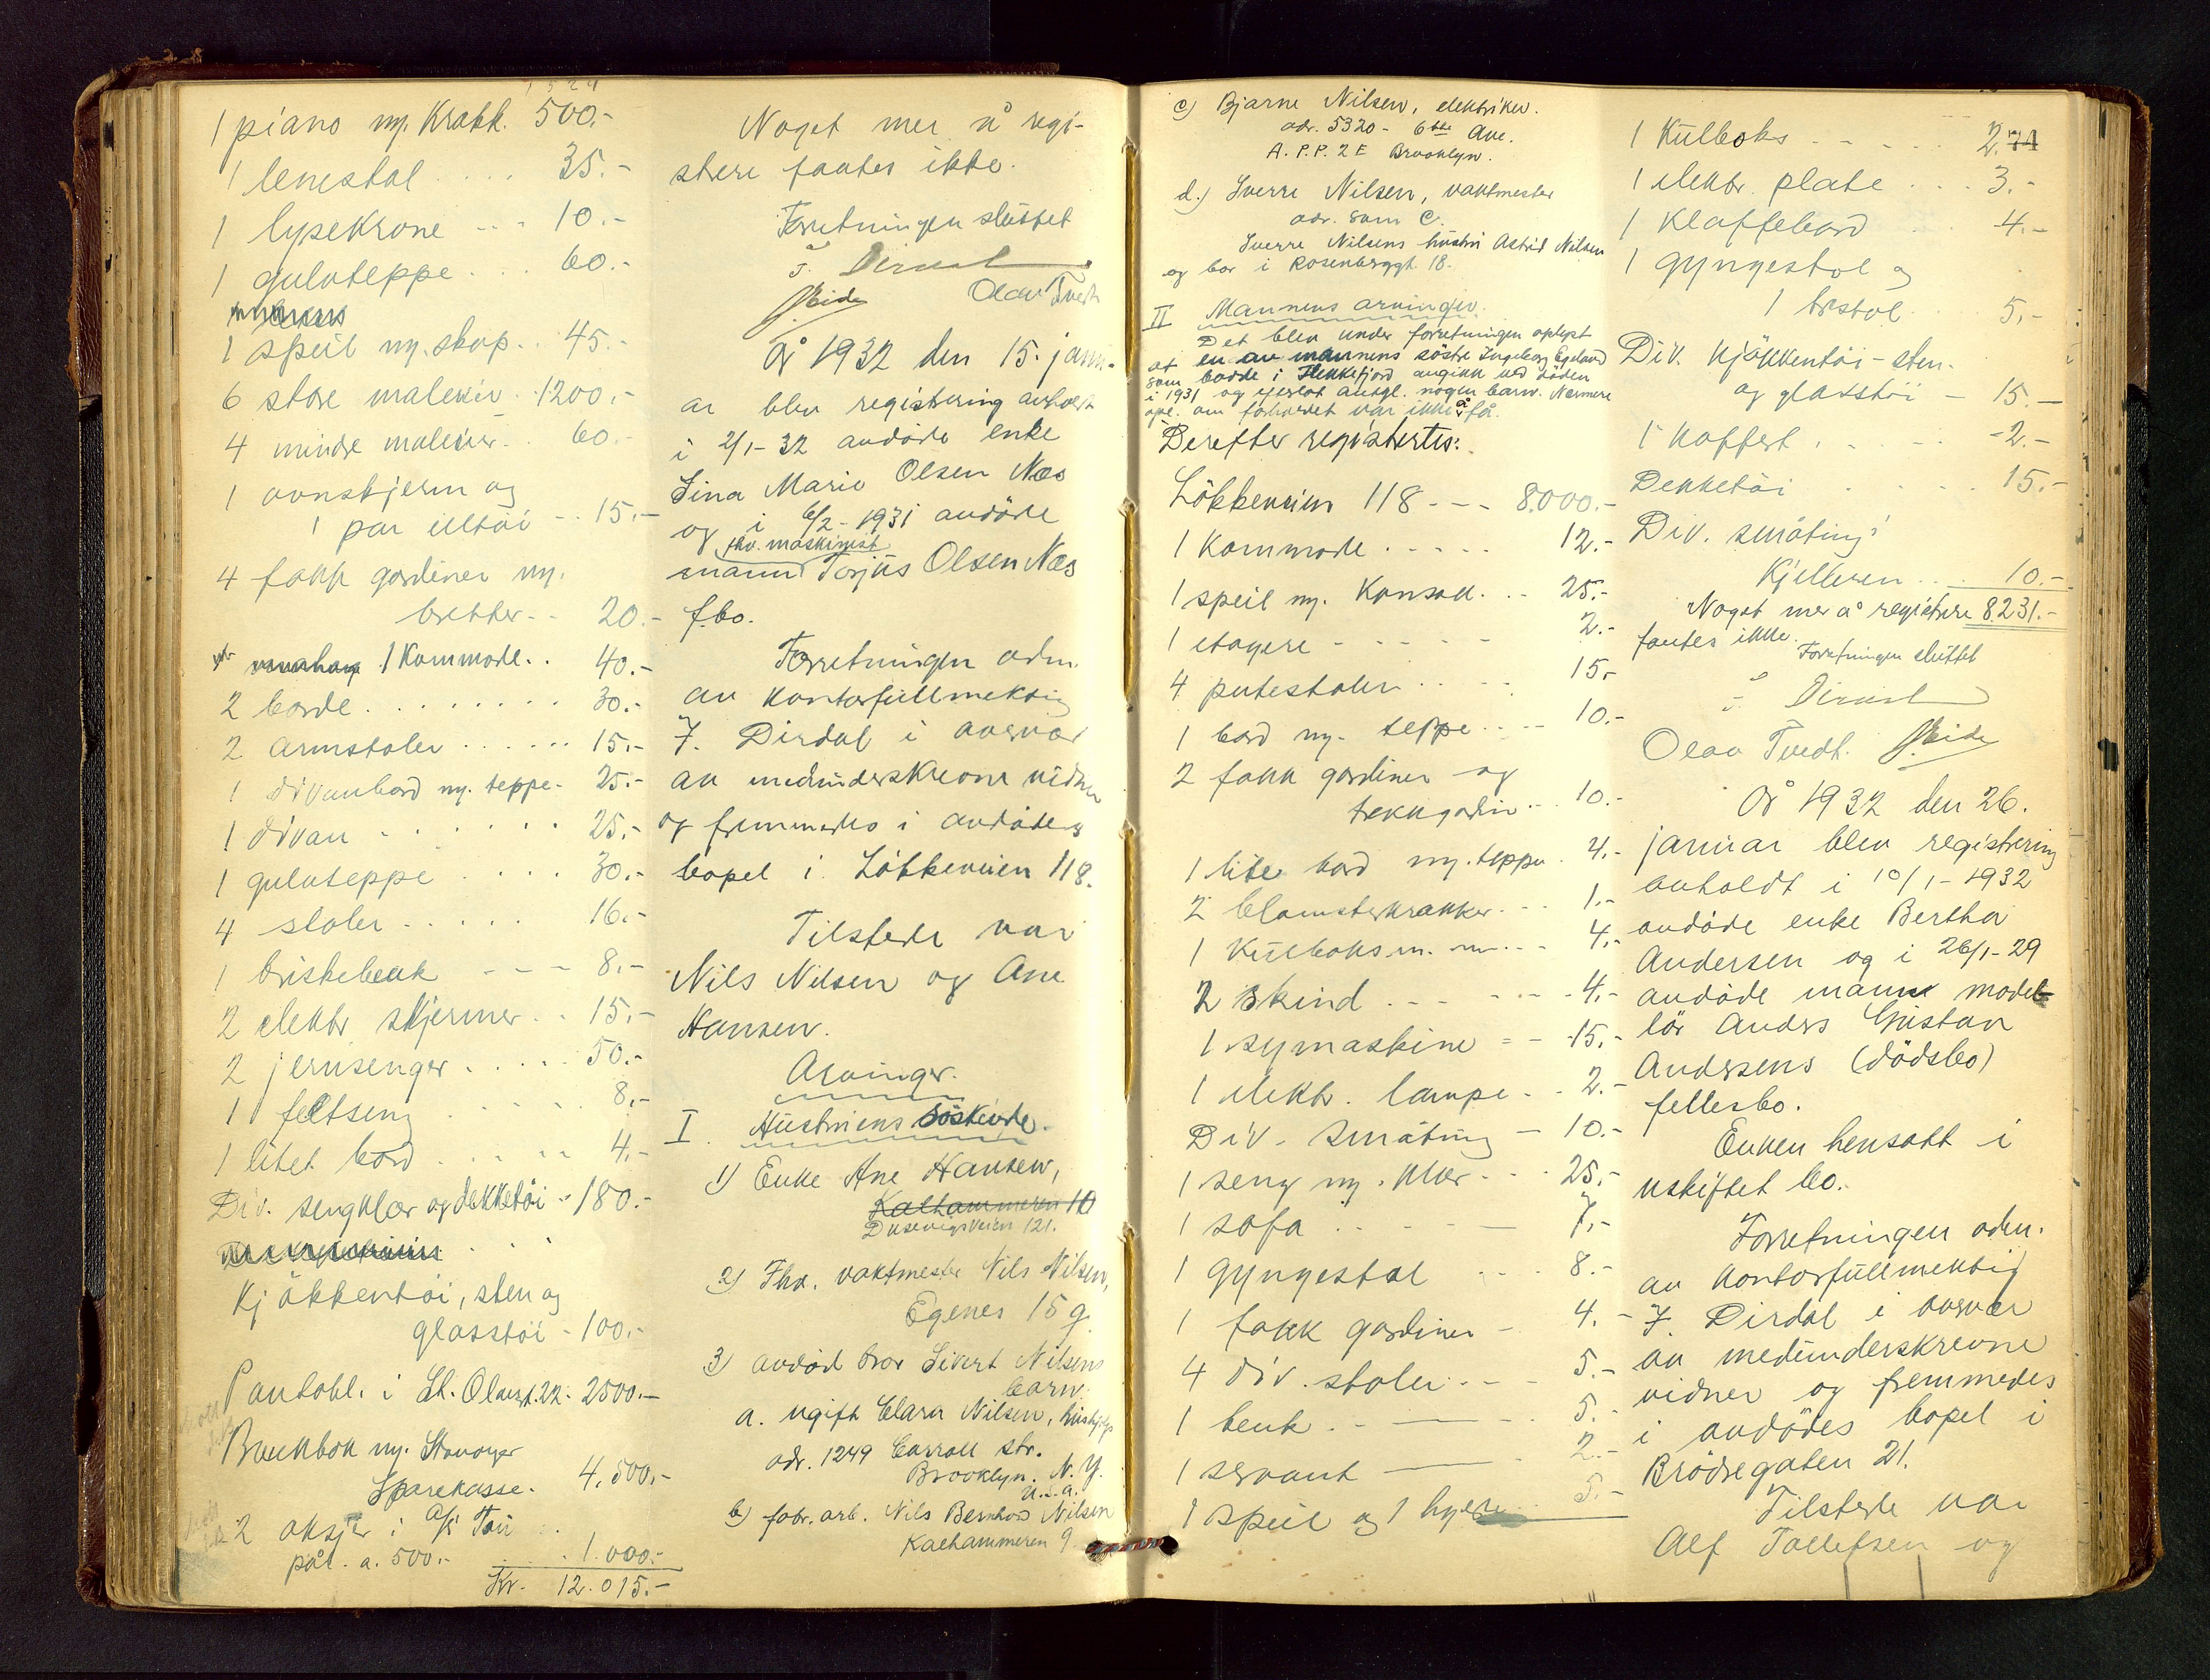 1 piano m. Krakk. 500.-
1 lenestol .... 35.-
1 lysekrone - - - 10.-
1 gulvteppe . . . 60.-
1 speil m. skap. . 45.-
6 store malerier . 1200.-
4 mindre malerier - . 60.-
1 ovnskjerm og
1 par ildtöi - - 15.-
4 fakk gardiner m.
bretter - - 20.-
1 Kommode . . 40.-
2 borde . . . . . . . . 30.-
2 armstoler . . . . . . 15.-
1 divanbord m. teppe - 25.-
1 divan - . . . . . 25.-
1 gulvteppe . . . . 30.-
4 stoler . . . . . 16.-
1 briskebenk - - - 8.-
2 elektr skjermer . . 15.-
2 jernsenger . . . . 50.-
1 feltseng . . . . . 8.-
1 litet bord . . . . . 4.-
Div. sengklær og dekketöi - 180.-
Kjökkentöi, sten og
glasstöi - 100.-
Pantobl. i St. Olavsgt. 22 - 2500.-
Bankbok m. Stavanger
Sparekasse. 4.500.-
2 aksjer i A/S Tou
pål. a. 500.- . . . . 1.000.-
Kr. 12.015.-
Noget mer å regi-
strere fantes ikke.
Forretningen sluttet
F. Dirdal
Eide Olav Tvedt
År 1932 den 15. janu-
ar blev registrering avholdt
i 2/1-32 avdöde enke
Sina Marie Olsen Næs
og i 6/2-1931 avdöde
fhv. maskinist
mann Torjus Olsen Næs
f.bo.
Forretningen adm.
av kontorfullmektig
F. Dirdal i overvær
av medunderskrevne vidner
og fremmedes i avdödes
bopel i Lökkeveien 118.
Tilstede var
Nils Nilsen og Ane
Hansen.
Arvinger.
I. Hustruens söskende.
1) Enke Ane Hansen,
Kalhammeren 10
Dusevigsveien 121.
2) Fhv. vaktmester Nils Nilsen,
Egenes 15 g.
3) avdöd bror Sivert Nilsens
barn.
a. ugift Clara Nilsen, hushjelp
adr. 1249 Carroll str.
Brooklyn. N.Y.
U.S.A.
b) fabr. arb. Nils Bernhard Nilsen
Kalhammeren 9.
c) Bjarne Nilsen, elektriker.
adr. 5320 - 6the Ave.
A.P.P. 2E Brooklyn.
d.) Sverre Nilsen, vaktmester
adr. som C.
Sverre Nilsens hustru Astrid Nilsen
og bor i Rosenberggt. 18.
II Mannens arvinger.
Det blev under forretningen oplyst
at en av mannens söstre Ingeborg Egeland
som bodde i Flekkefjord avgikk ved döden
i 1931 og efterlot antgl. nogen barn. Nærmere
opl. om forholdet var ikke å få.
Derefter registrertes:
Lökkeveien 118 - - - 8.000.-
1 Kommode . . . . . 12.-
1 speil m. Konsoll . . - 25.-
1 etagere - - - - - 2.-
4 putestoler . . . . . 15.-
1 bord m. teppe . . . - 10.-
2 fakk gardiner og
trekkgardin . . . 10.-
1 lite bord m. teppe . 4.-
2 blomsterkrakker . . . 1.-
1 Kulboks m. m. . . - 4.-
2 skind . . . - - - - 4.-
1 symaskine = - 15.-
1 elektr. lampe . . 2.-
Div. småting - 10.-
1 seng m. klær . . . 25.-
1 sofa . . . . . - 7.-
1 gyngestol . . . 8.-
1 fakk gardiner - 4.-
4 div. stoler . . - - 5.-
1 benk . - - - 5.-
1 servant - - 2.-
1 speil og 1 hylde 5.-
1 Kulboks - - . . . . 2.-
74
1 elektr. plate . . . 3.-
1 Klaffebord 4.-
1 gyngestol og
1 trstol . 5.-
Div. kjökkentöi - sten-
og glasstöi - 15.-
1 koffert . . . . . - 2.-
Dekketöi . . . . . 15.-
Div. småting i
Kjelleren . . . 10.-
Noget mer å registrere 8231.-
fantes ikke.
Forretningen sluttet
F. Dirdal
Olav Tvedt. Eide
År 1932 den 26.
januar blev registrering
avholdt i 10/1-1932
avdöde enke Bertha
Andersen og i 26/1-29
avdöde mann model-
lör Anders Gustav
Andersens (dödsbo)
fellesbo.
Enken hensatt i
uskiftet bo.
Forretningen adm.
av kontorfullmektig
F. Dirdal i overvær
av medunderskrevne
vidner og fremmedes
i avdödes bopel i
Brödregaten 21.
Tilstede var
Alf Tollefsen og